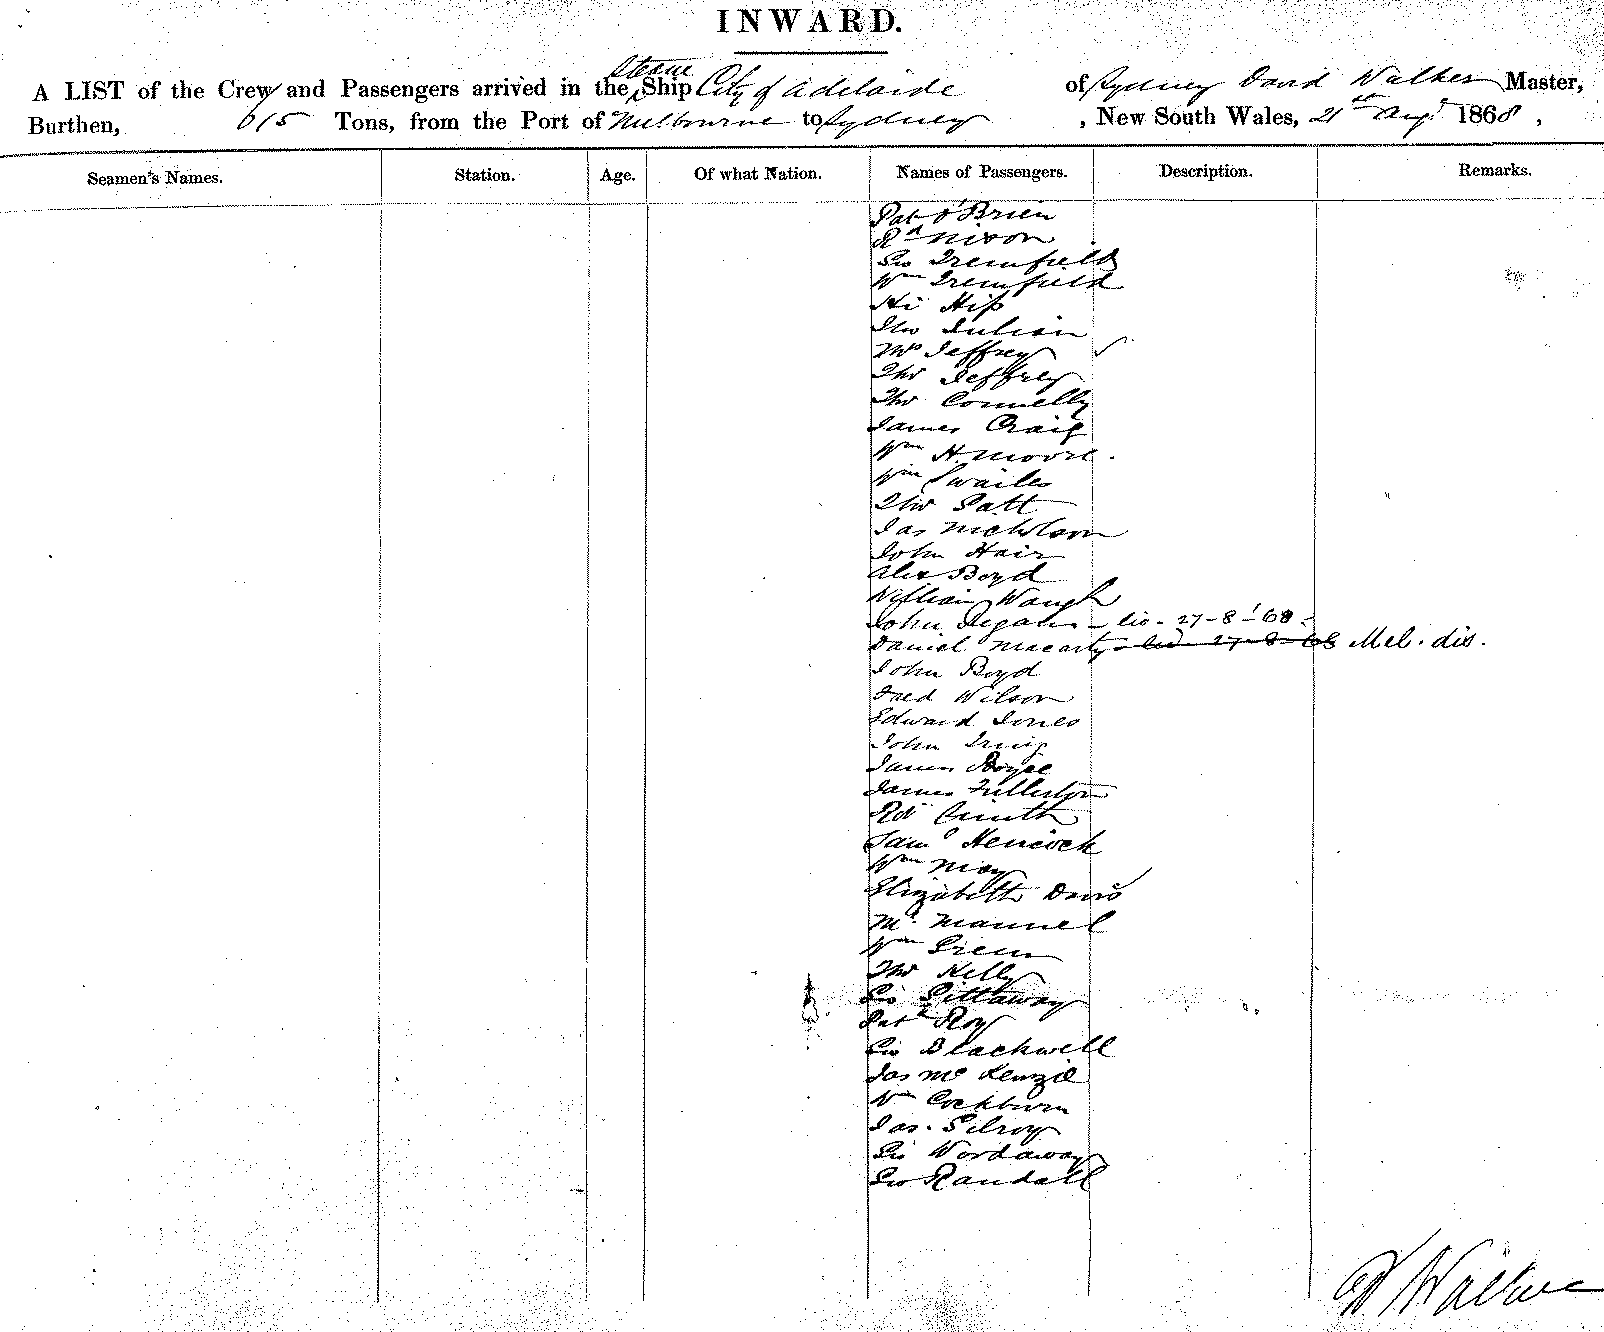 INWARD.
Steam
A LIST of the Crew and Passengers arrived in the Ship City of Adelaide of Sydney David Walker Master,
Burthen, 615 Tons, from the Port of Melbourne to Sydney , New South Wales, 21st Augt 1868 ,
Seamen's Names. Station. Age. Of what Nation. Names of Passengers. Description. Remarks.
Pat O'Brien
Rd Nixon
Geo Tremfield
Wm Tremfield
Hi Hip
Tho Julian
Mrs Jeffrey
Thos Jeffrey
Thos Connelly
James Craig
Wm H. Moore.
Wm Swailes
Thos Patt
Jas Nicholson
John Hair
Alex Boyd
William Waugh
John Regan - lic - 27-8-'68-
Daniel Macarty - lic 27-8-68 Mel. dis.
John Boyd
Fred Wilson
Edward Jones
John Irvig
James Boyce
James Fullerton
Robt Smith
Saml Hencock
Wm May
Elizabeth Davis
Mr Mannel
Wm Green
Thos Kelly
Geo Pittaway
Patk Roy
Geo Blackwell
Jas McKenzie
Wm Cockburn
Jas. Gilroy
Geo Wordaway
Geo Randall
D Walker